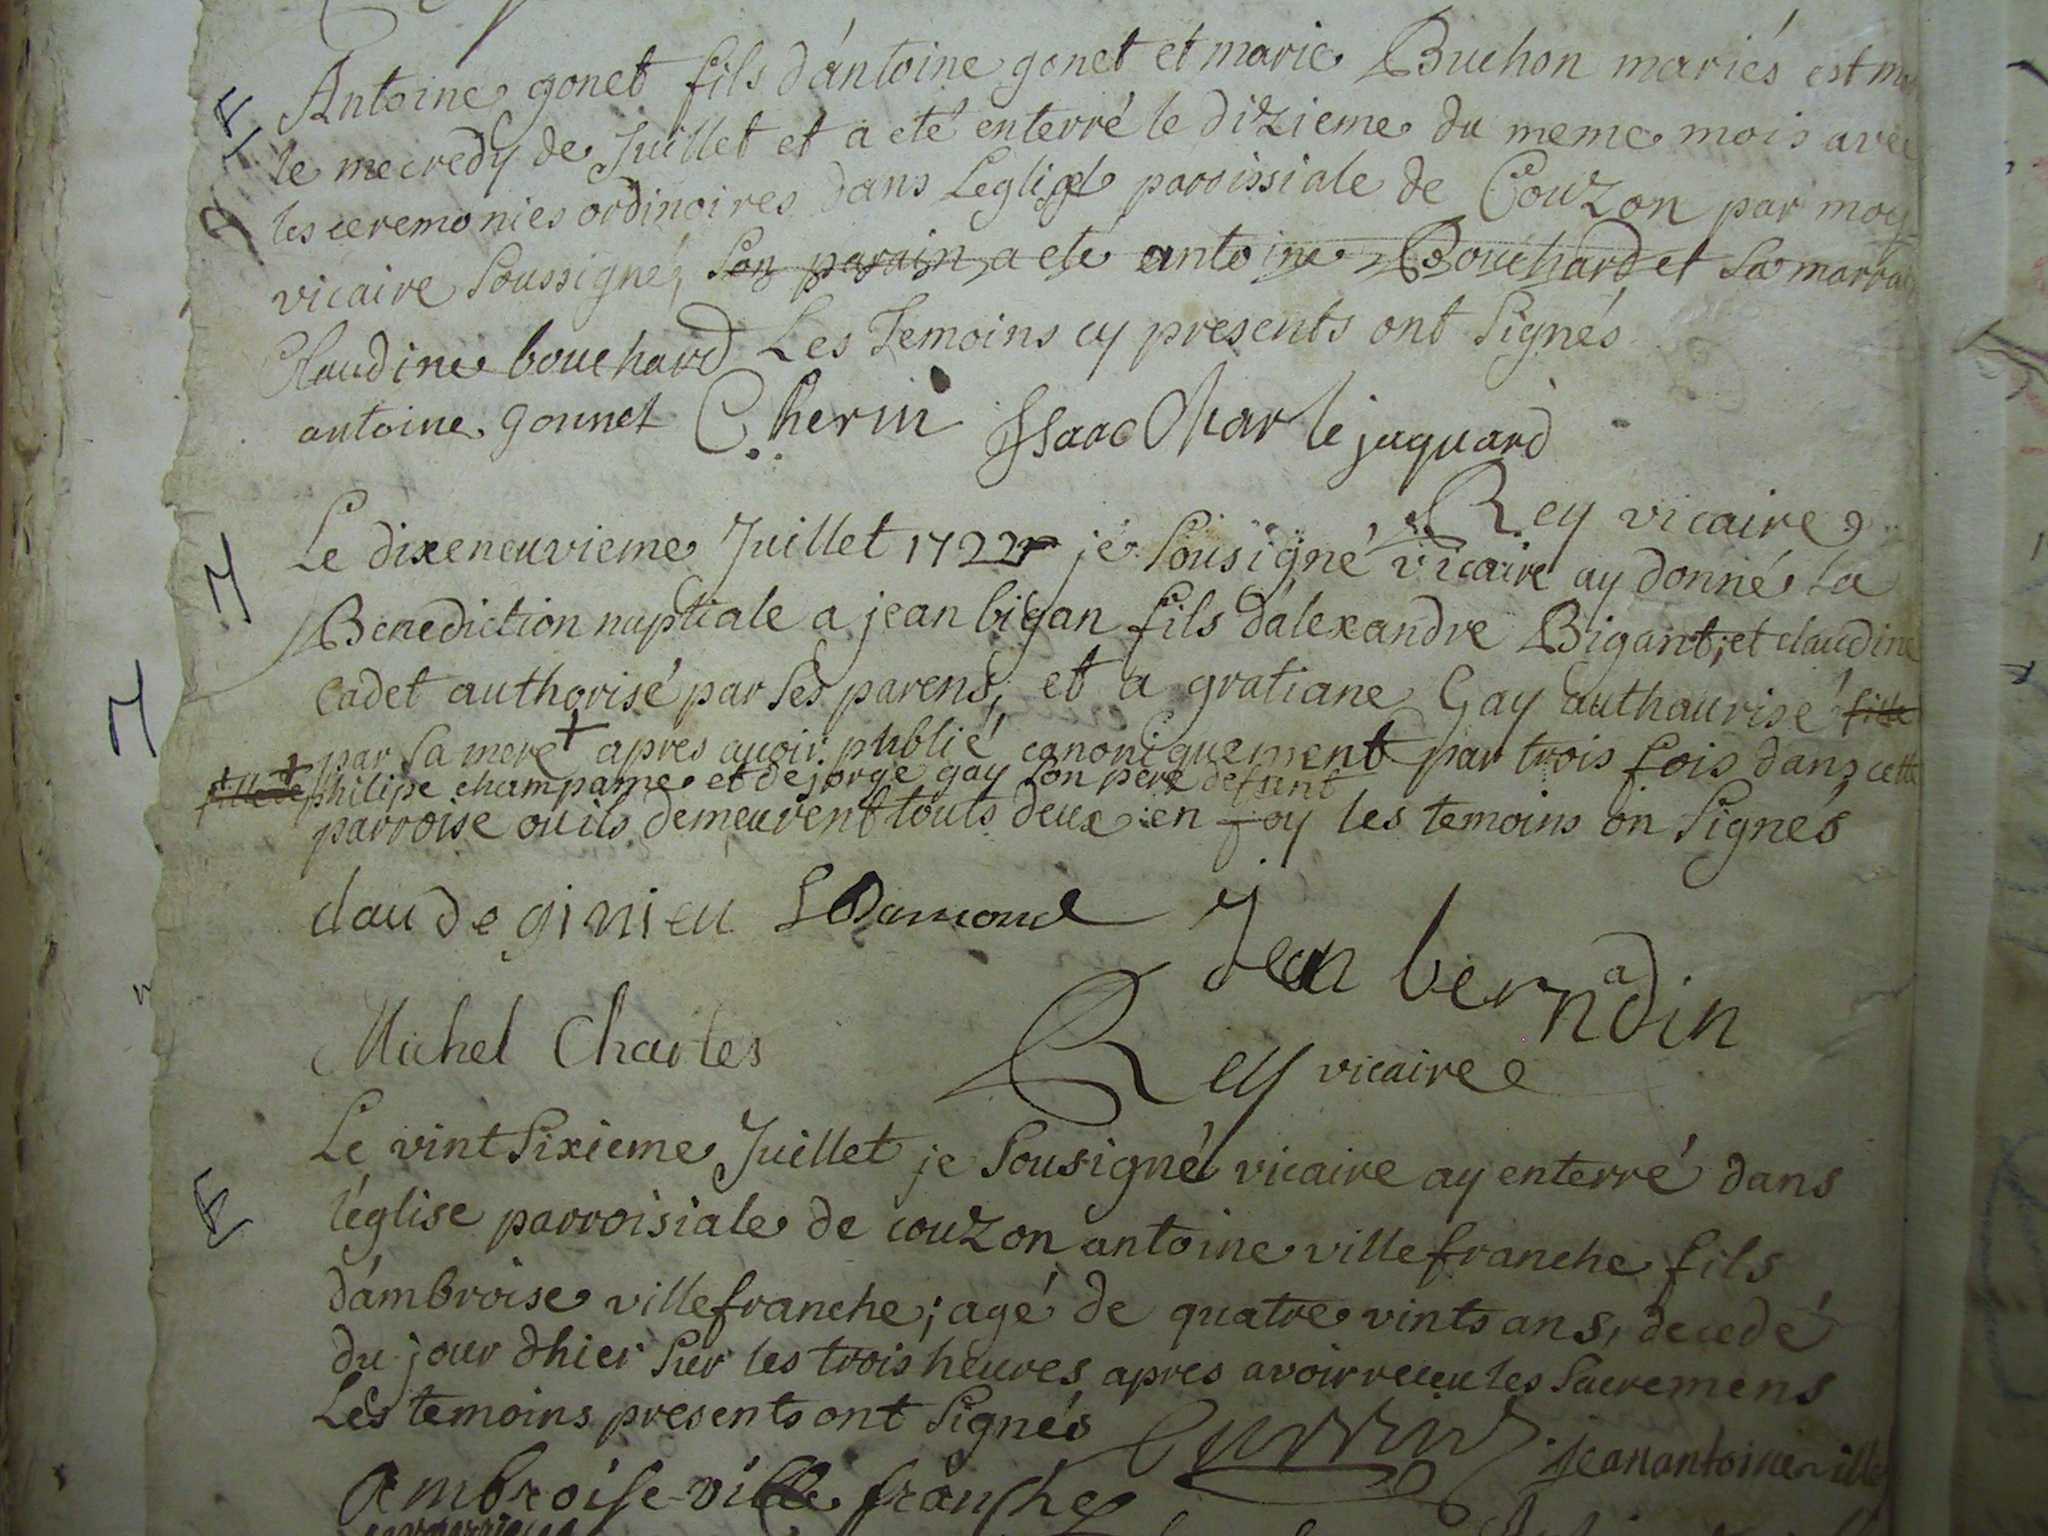 Antoine gonet fils d'antoine gonet et marie Buchon mariés est
E le mecredy de Juillet et a eté enterré le dizieme du meme mois avec
les ceremonies ordinoires dans L'eglise paroissiale de Couzon par moy
vicaire Soussigné, Son parain a eté antoine Bouchard et Sa marraine
Claudine bouchard Les Temoins cy presents ont Signés
antoine gonnet Cherin Isaac Charle jaquard
Rey vicaire
M Le dixeneuvieme Juillet 1722 je Sousigné vicaire ay donné la
Benediction nuptiale a jean bigan fils d'alexandre Bigant; et claudine
M Cadet authorisé par Ses parens; et a gratiane Gay authaurisé fille
par Sa mere + apres avoir publié canoniquement par trois fois dans cette
fille de + philipe champame et de jorge gay Son pere defunt
parroise ou ils demeurent touts deux en foy les temoins on Signés
claude ginieu Damond Jean bernadin
Michel Charles Rey vicaire
Le vint Sixieme Juillet je Sousigné vicaire ay enterré dans
E l'église parroisiale de couzon antoine villefranche fils
d'ambroise villefranche; agé de quatre vints ans, decedé
du jour d'hier Sur les trois heures apres avoir receu les Sacremens
Les temoins presents ont Signés jean antoine ville
Ambroise ville franche